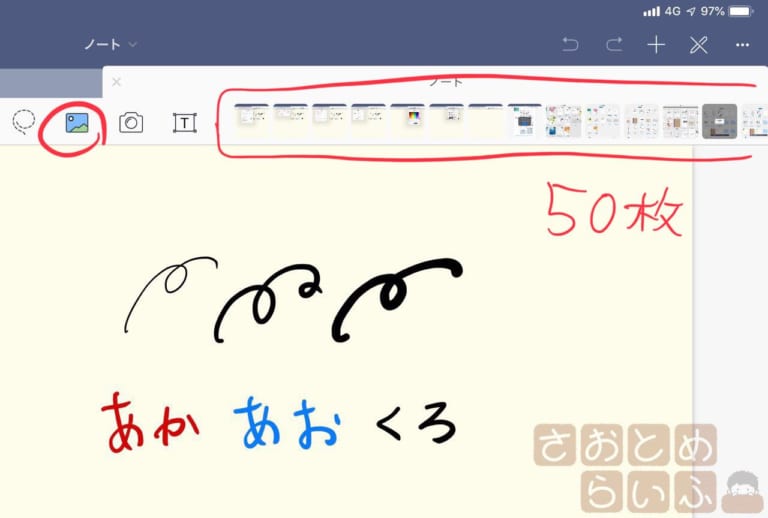 4G 97%
ノート
ノート
T
50枚
あか あお くろ
さおとめ
らいふ